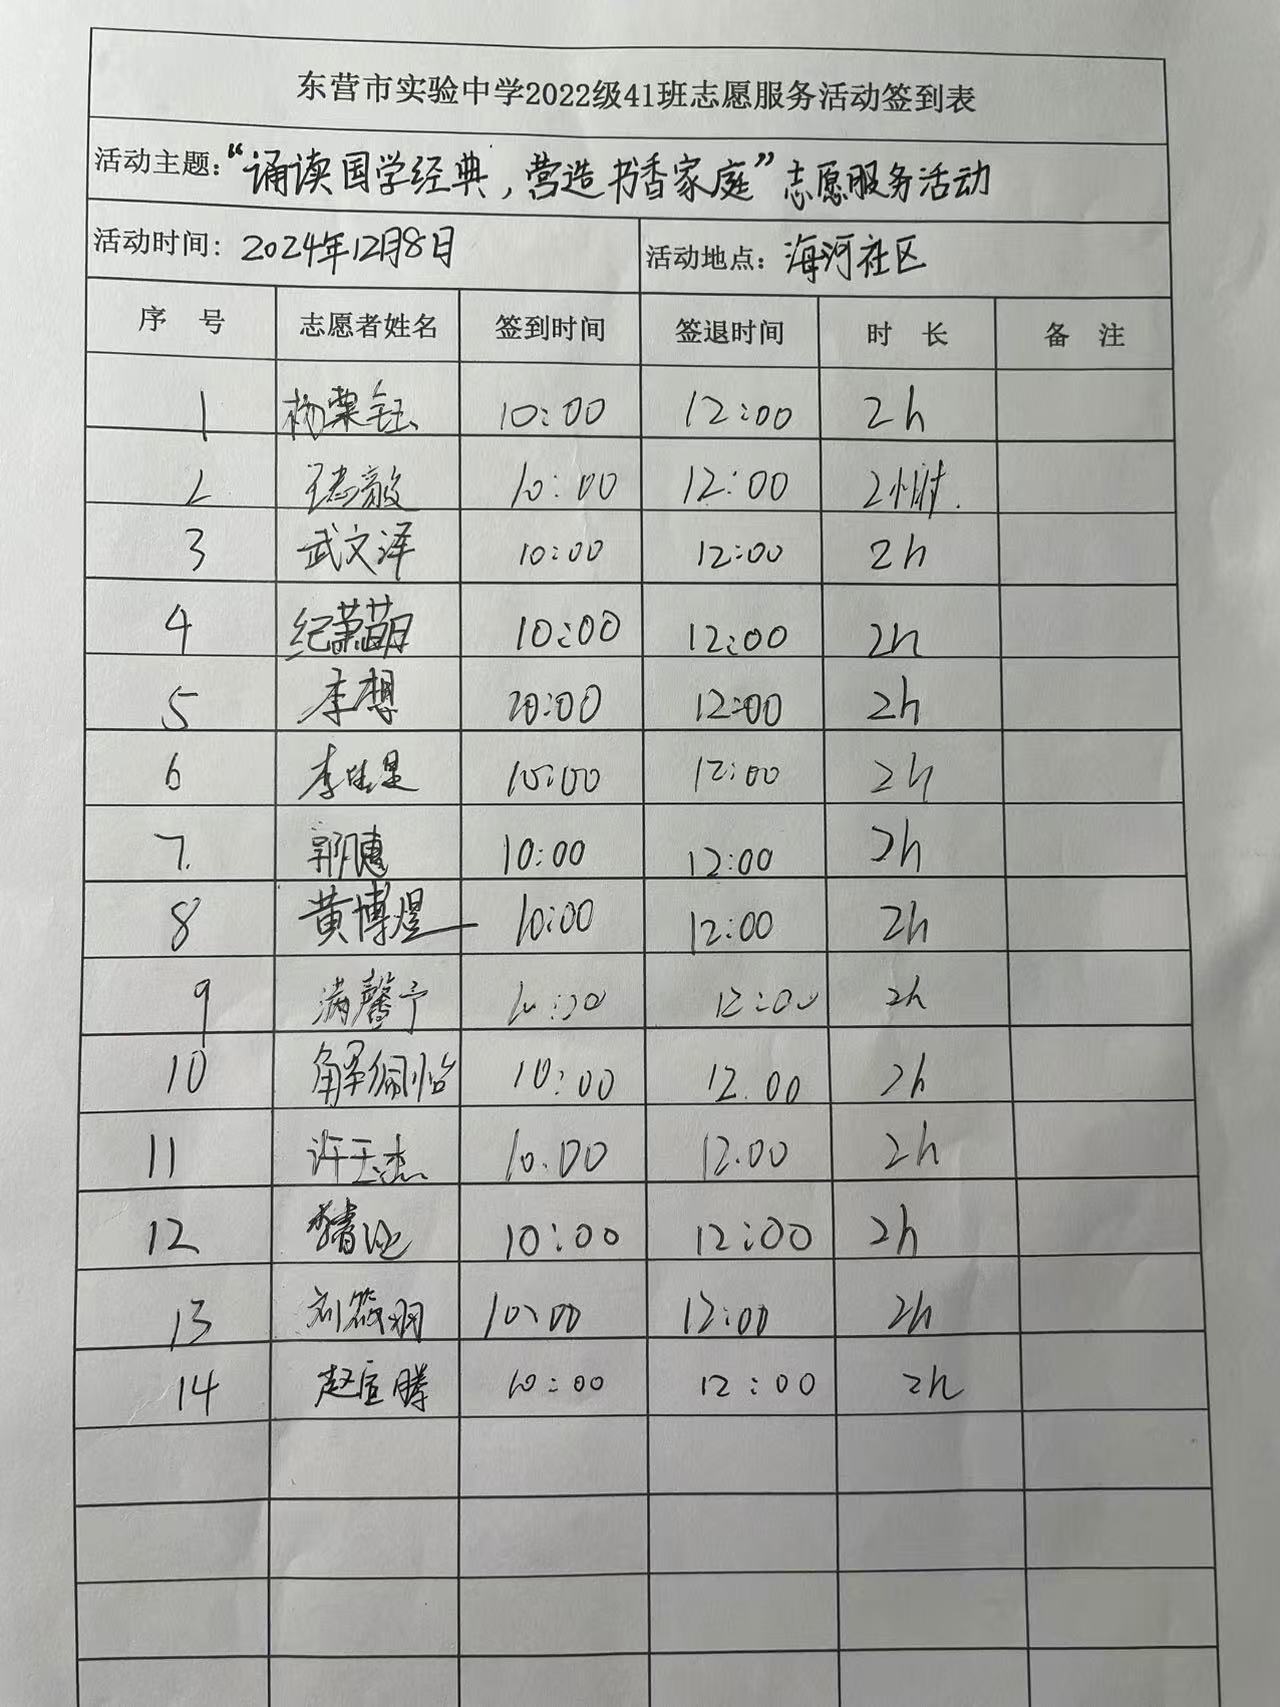 东营市实验中学2022级41班志愿服务活动签到表
活动主题：“诵读国学经典，营造书香家庭”志愿服务活动
活动时间：2024年12月8日 活动地点：海河社区
序 号 志愿者姓名 签到时间 签退时间 时 长 备 注
1 杨栗钰 10:00 12:00 2h
2 10:00 12:00 2小时.
3 武文泽 10:00 12:00 2h
4 纪萧萌 10:00 12:00 2h
5 李想 10:00 12:00 2h
6 李佳星 10:00 12:00 2h
7. 郭穗 10:00 12:00 2h
8 黄博煜 10:00 12:00 2h
9 满馨予 10:00 12:00 2h
10 解佩怡 10:00 12.00 2h
11 许玉杰 10.00 12.00 2h
12 10:00 12:00 2h
13 刘筱羽 10:00 12:00 2h
14 赵宜腾 10:00 12:00 2h